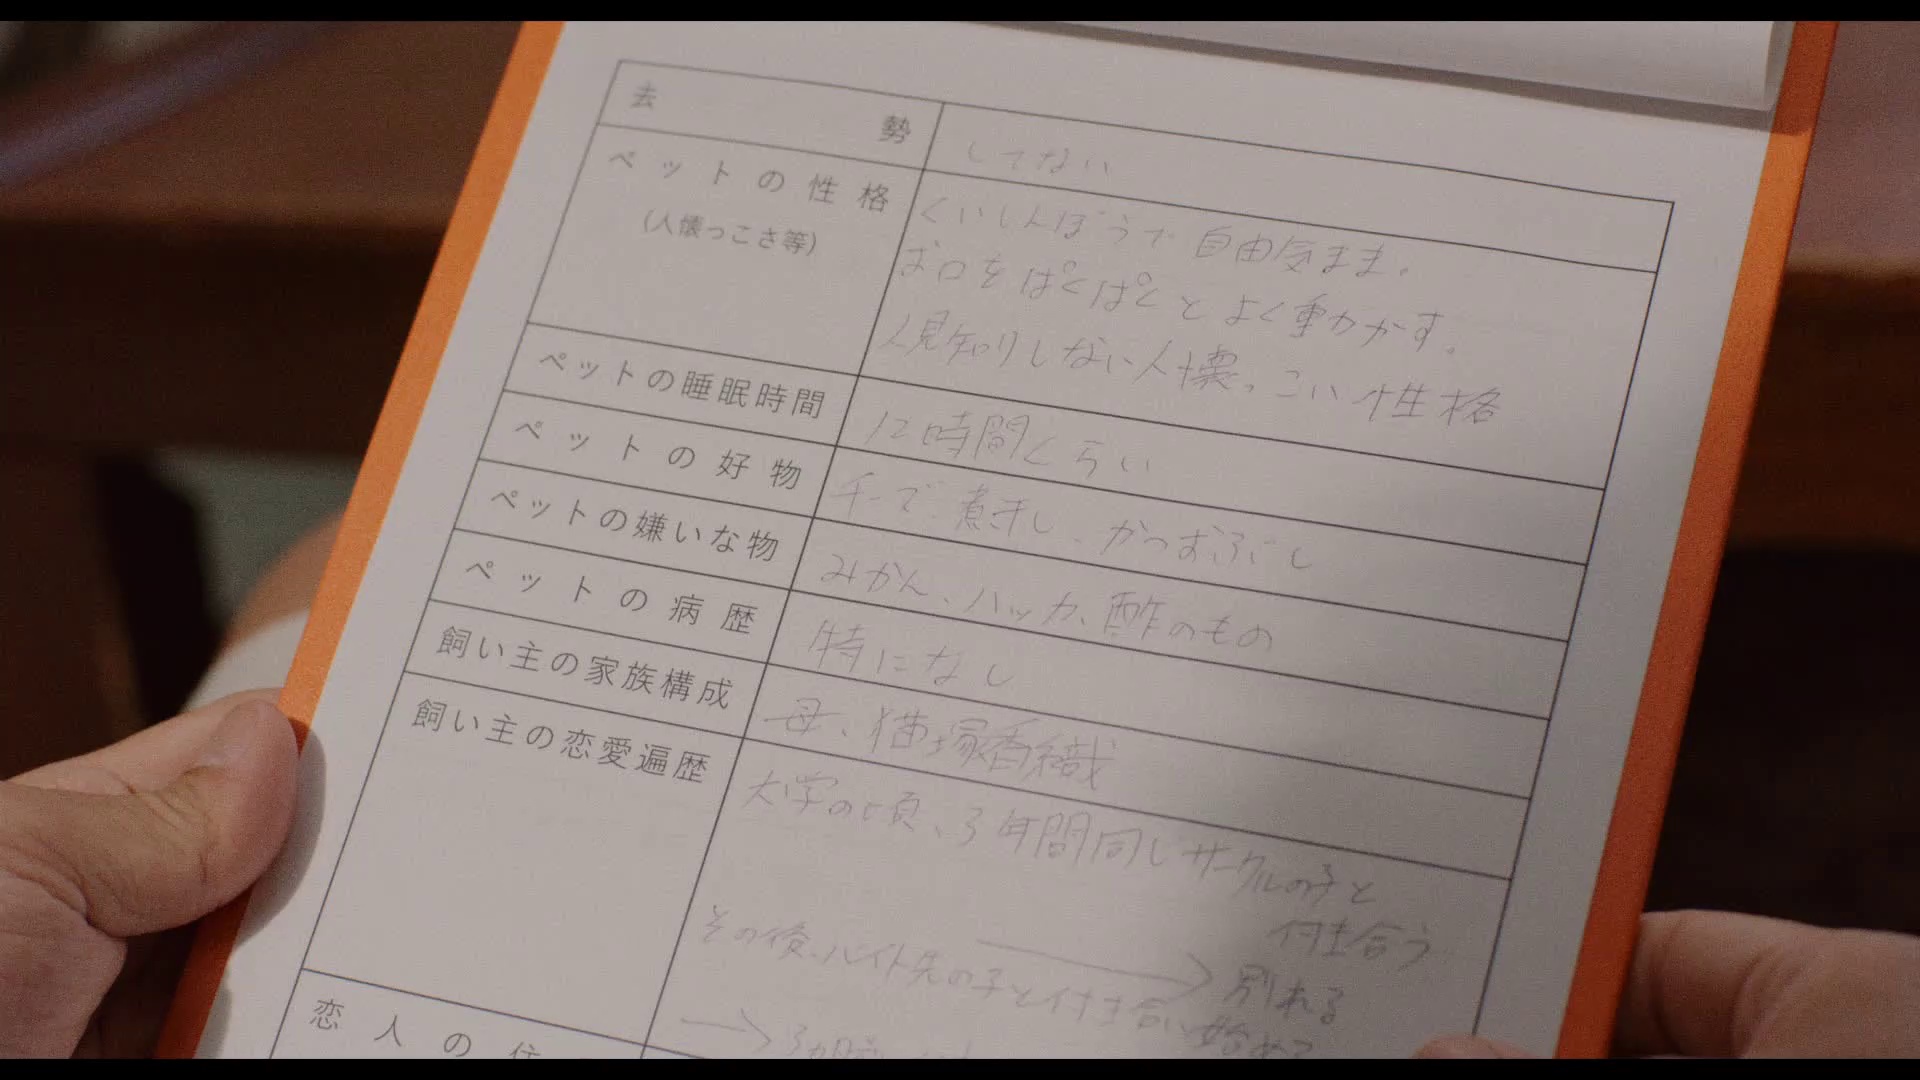 去勢 してない
ペットの性格
(人懐っこさ等)
くいしんぼうで自由気まま。
お口をぱくぱくとよく動かす。
人見知りしない人懐っこい性格
ペットの睡眠時間 12時間くらい
ペットの好物 チーで、煮干し、かつおぶし
ペットの嫌いな物 みかん、ハッカ、酢のもの
ペットの病歴 特になし
飼い主の家族構成 母、猫塚香織
飼い主の恋愛遍歴
大学の頃、3年間同じサークルの子と
付き合う
→別れる
その後、バイト先の子と付き合い始めて
→3カ月
恋人の